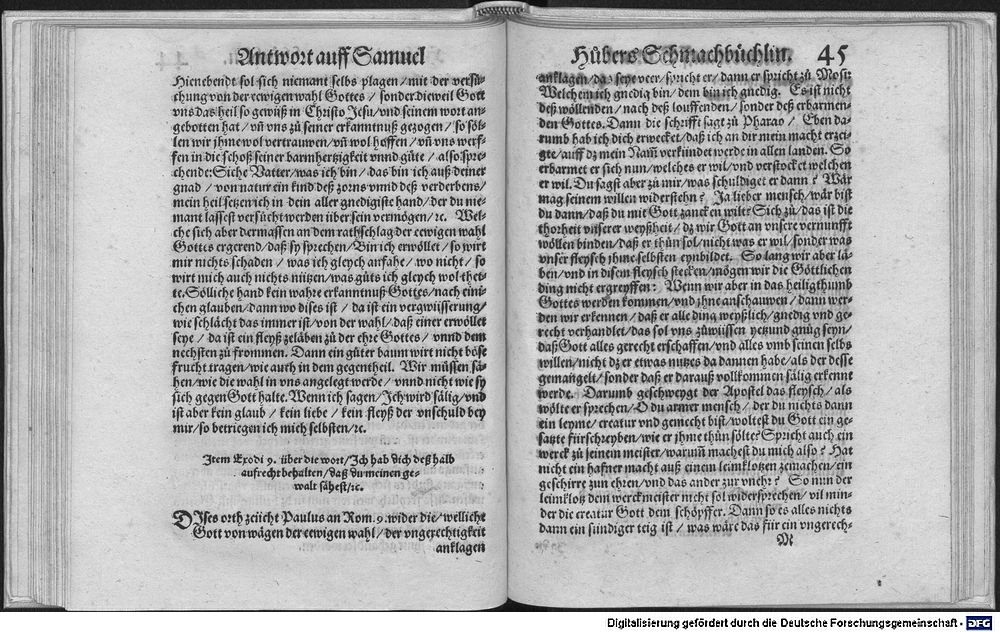 Antwort auff Samuel
Hienebendt sol sich niemant selbs plagen / mit der versů-
chung von der eewigen wahl Gottes / sonder dieweil Gott
vns das heil so gewüß in Christo Jesu / vnd seinem wort an-
gebotten hat / vñ vns zů seiner erkanntnuß gezogen / so söl-
len wir jhme wol vertrauwen / vñ wol hoffen / vñ vns werf-
fen in die schoß seiner barmhertzigkeit vnnd güte / also spre-
chende: Siche Vatter / was ich bin / das bin ich auß deiner
gnad / von natur ein kind deß zorns vnnd deß verderbens /
mein heil setzen ich in dein aller gnedigiste hand / der du nie-
mant lassest versůcht werden über sein vermögen / ꝛc. Wel-
che sich aber dermassen an dem rathschlag der eewigen wahl
Gottes ergerend / daß sy sprechen / Bin ich erwöllet / so wirt
mir nichts schaden / was ich gleych anfahe / wo nicht / so
wirt mich auch nichts nützen / was gůts ich gleych wol thet-
te. Sölliche hand kein wahre erkanntnuß Gottes / nach eini-
chen glauben / dann wo dises ist / da ist ein vergwüsserung /
wie schlächt das immer ist / von der wahl / daß einer erwöllet
seye / da ist ein fleyß zeläben zů der ehre Gottes / vnnd dem
nechsten zů frommen. Dann ein gůter baum wirt nicht böse
frucht tragen / wie auch in dem gegentheil. Wir müssen sä-
hen / wie die wahl in vns angelegt werde / vnnd nicht wie sy
sich gegen Gott halte. Wenn ich sagen / Ich wird sälig / vnd
ist aber kein glaub / kein liebe / kein fleyß der vnschuld bey
mir / so betriegen ich mich selbsten / ꝛc.
Item Exodi 9. über die wort / Ich hab dich deß halb
auffrecht behalten / daß du meinen ge-
walt sähest / ꝛc.
DIses orth zeücht Paulus an Rom. 9. wider die / welliche
Gott von wägen der eewigen wahl / der vngerechtigkeit
anklagen
Hůbers Schmachbüchlin. 45
anklagen / da seye veer / spricht er / dann er spricht zů Mosi:
Welchem ich gnedig bin / dem bin ich gnedig. Es ist nicht
deß wöllenden / nach deß louffenden / sonder deß erbarmen-
den Gottes. Dann die schrifft sagt zů Pharao / Eben da-
rumb hab ich dich erwecket / daß ich an dir mein macht erzei-
gte / auff dz mein Nam̃ verkündet werde in allen landen. So
erbarmet er sich nun / welches er wil / vnd verstocket welchen
er wil. Du sagst aber zů mir / was schuldiget er dann? Wär
mag seinem willen widerstehn? Ja lieber mensch / wär bist
du dann / daß du mit Gott zancken wilt? Sich zů / das ist die
thorheit vnserer weyßheit / dz wir Gott an vnsere vernunfft
wöllen binden / daß er thůn sol / nicht was er wil / sonder was
vnser fleysch jhme selbsten eynbildet. So lang wir aber lä-
ben / vnd in disem fleysch stecken / mögen wir die Göttlichen
ding nicht ergreyffen: Wenn wir aber in das heiligthumb
Gottes werden kommen / vnd jhne anschauwen / dann wer-
den wir erkennen / daß er alle ding weyßlich / gnedig vnd ge-
recht verhandlet / das sol vns zůwüssen yetzund gnůg seyn /
daß Gott alles gerecht erschaffen / vnd alles vmb seinen selbs
willen / nicht dz er etwas nutzes da dannen habe / als der desse
gemangelt / sonder daß er darauß vollkommen sälig erkennt
werde. Darumb geschweygt der Apostel das fleysch / als
wölte er sprechen / O du armer mensch / der du nichts dann
ein leyme / creatur vnd gemecht bist / woltest du Gott ein ge-
satzte fürschreyben / wie er jhme thůn sölte? Spricht auch ein
werck zů seinem meister / warum̃ machest du mich also? Hat
nicht ein hafner macht auß einem leimklotzen zemachen / ein
geschirre zun ehren / vnd das ander zur vnehr? So nun der
leimklotz dem werckmeister nicht sol widersprechen / vil min-
der die creatur Gott dem schöpffer. Dann so es alles nichts
dann ein sündiger teig ist / was wäre das für ein vngerech-
M
Digitalisierung gefördert durch die Deutsche Forschungsgemeinschaft - DFG